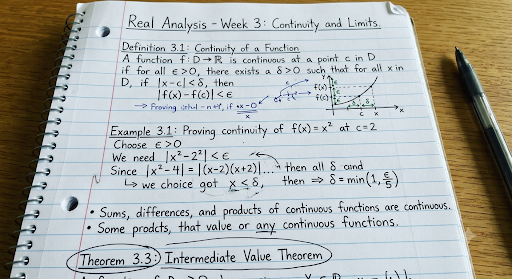 Real Analysis - Week 3: Continuity and Limits.
Definition 3.1: Continuity of a Function
A function f: D → ℝ is continuous at a point c in D
if for all ε > 0, there exists a δ > 0 such that for all x in
D, if |x-c| < δ, then
|f(x) - f(c)| < ε
→ Proving if
f(x)
f(c)
c x
x
Example 3.1: Proving continuity of f(x) = x² at c=2
Choose ε > 0
We need |x² - 2²| < ε
Since |x² - 4| = |(x-2)(x+2)|... then all δ and
↳ we choice got x ≤ δ, then ⇒ δ = min(1, ε/5)
• Sums, differences, and products of continuous functions are continuous.
• Some prodcts, that value or any continuous functions.
Theorem 3.3: Intermediate Value Theorem